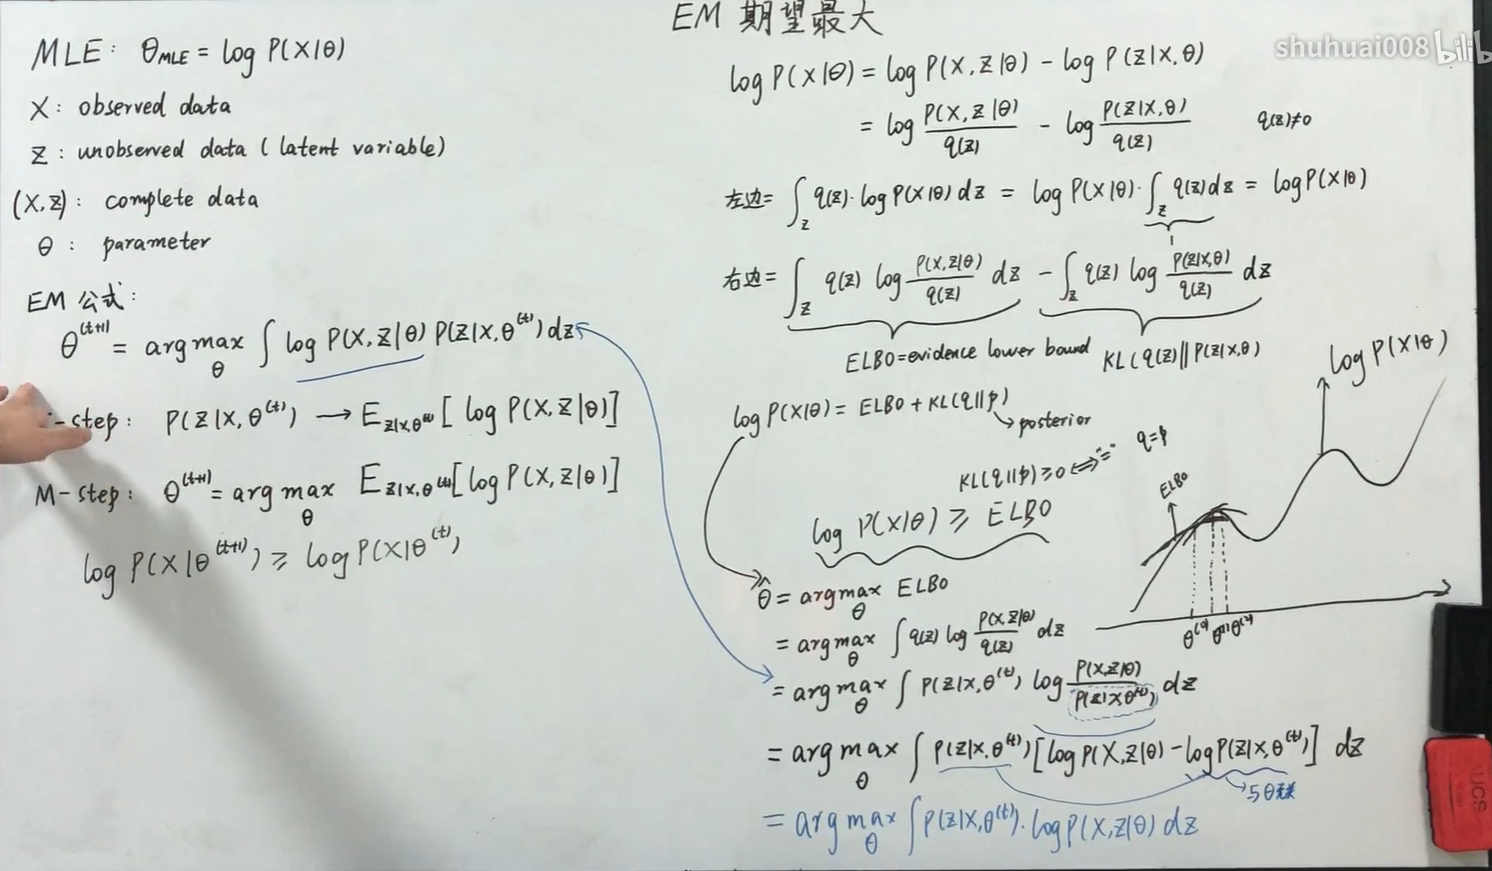 EM 期望最大
shuhuai008 bilib
MLE: θ_MLE = log P(X|θ)
X: observed data
Z: unobserved data (latent variable)
(X,Z): complete data
θ: parameter
EM 公式:
θ^(t+1) = arg max_θ ∫ log P(X,Z|θ) P(Z|X,θ^(t)) dz
-step: P(Z|X,θ^(t)) → E_{Z|X,θ^(t)} [log P(X,Z|θ)]
M-step: θ^(t+1) = arg max_θ E_{Z|X,θ^(t)} [log P(X,Z|θ)]
log P(X|θ^(t+1)) ≥ log P(X|θ^(t))
log P(X|θ) = log P(X,Z|θ) - log P(Z|X,θ)
= log P(X,Z|θ)/q(Z) - log P(Z|X,θ)/q(Z) q(Z)≠0
左边 = ∫_Z q(Z)·log P(X|θ) dz = log P(X|θ)·∫_Z q(Z) dz = log P(X|θ)
1
右边 = ∫_Z q(Z) log P(X,Z|θ)/q(Z) dz - ∫_Z q(Z) log P(Z|X,θ)/q(Z) dz
ELBO=evidence lower bound KL(q(Z)||P(Z|X,θ))
log P(X|θ) = ELBO + KL(q||p)
posterior
KL(q||p)≥0 ⇔ "=" q=p
log P(X|θ) ≥ ELBO
θ̂ = argmax_θ ELBO
= argmax_θ ∫ q(Z) log P(X,Z|θ)/q(Z) dz
= argmax_θ ∫ P(Z|X,θ^(t)) log P(X,Z|θ)/P(Z|X,θ^(t)) dz
= arg max_θ ∫ P(Z|X,θ^(t)) [log P(X,Z|θ) - log P(Z|X,θ^(t))] dz
与θ无关
= arg max_θ ∫ P(Z|X,θ^(t))·log P(X,Z|θ) dz
log P(X|θ)
ELBO
θ^(0) θ^(1) θ^(2)